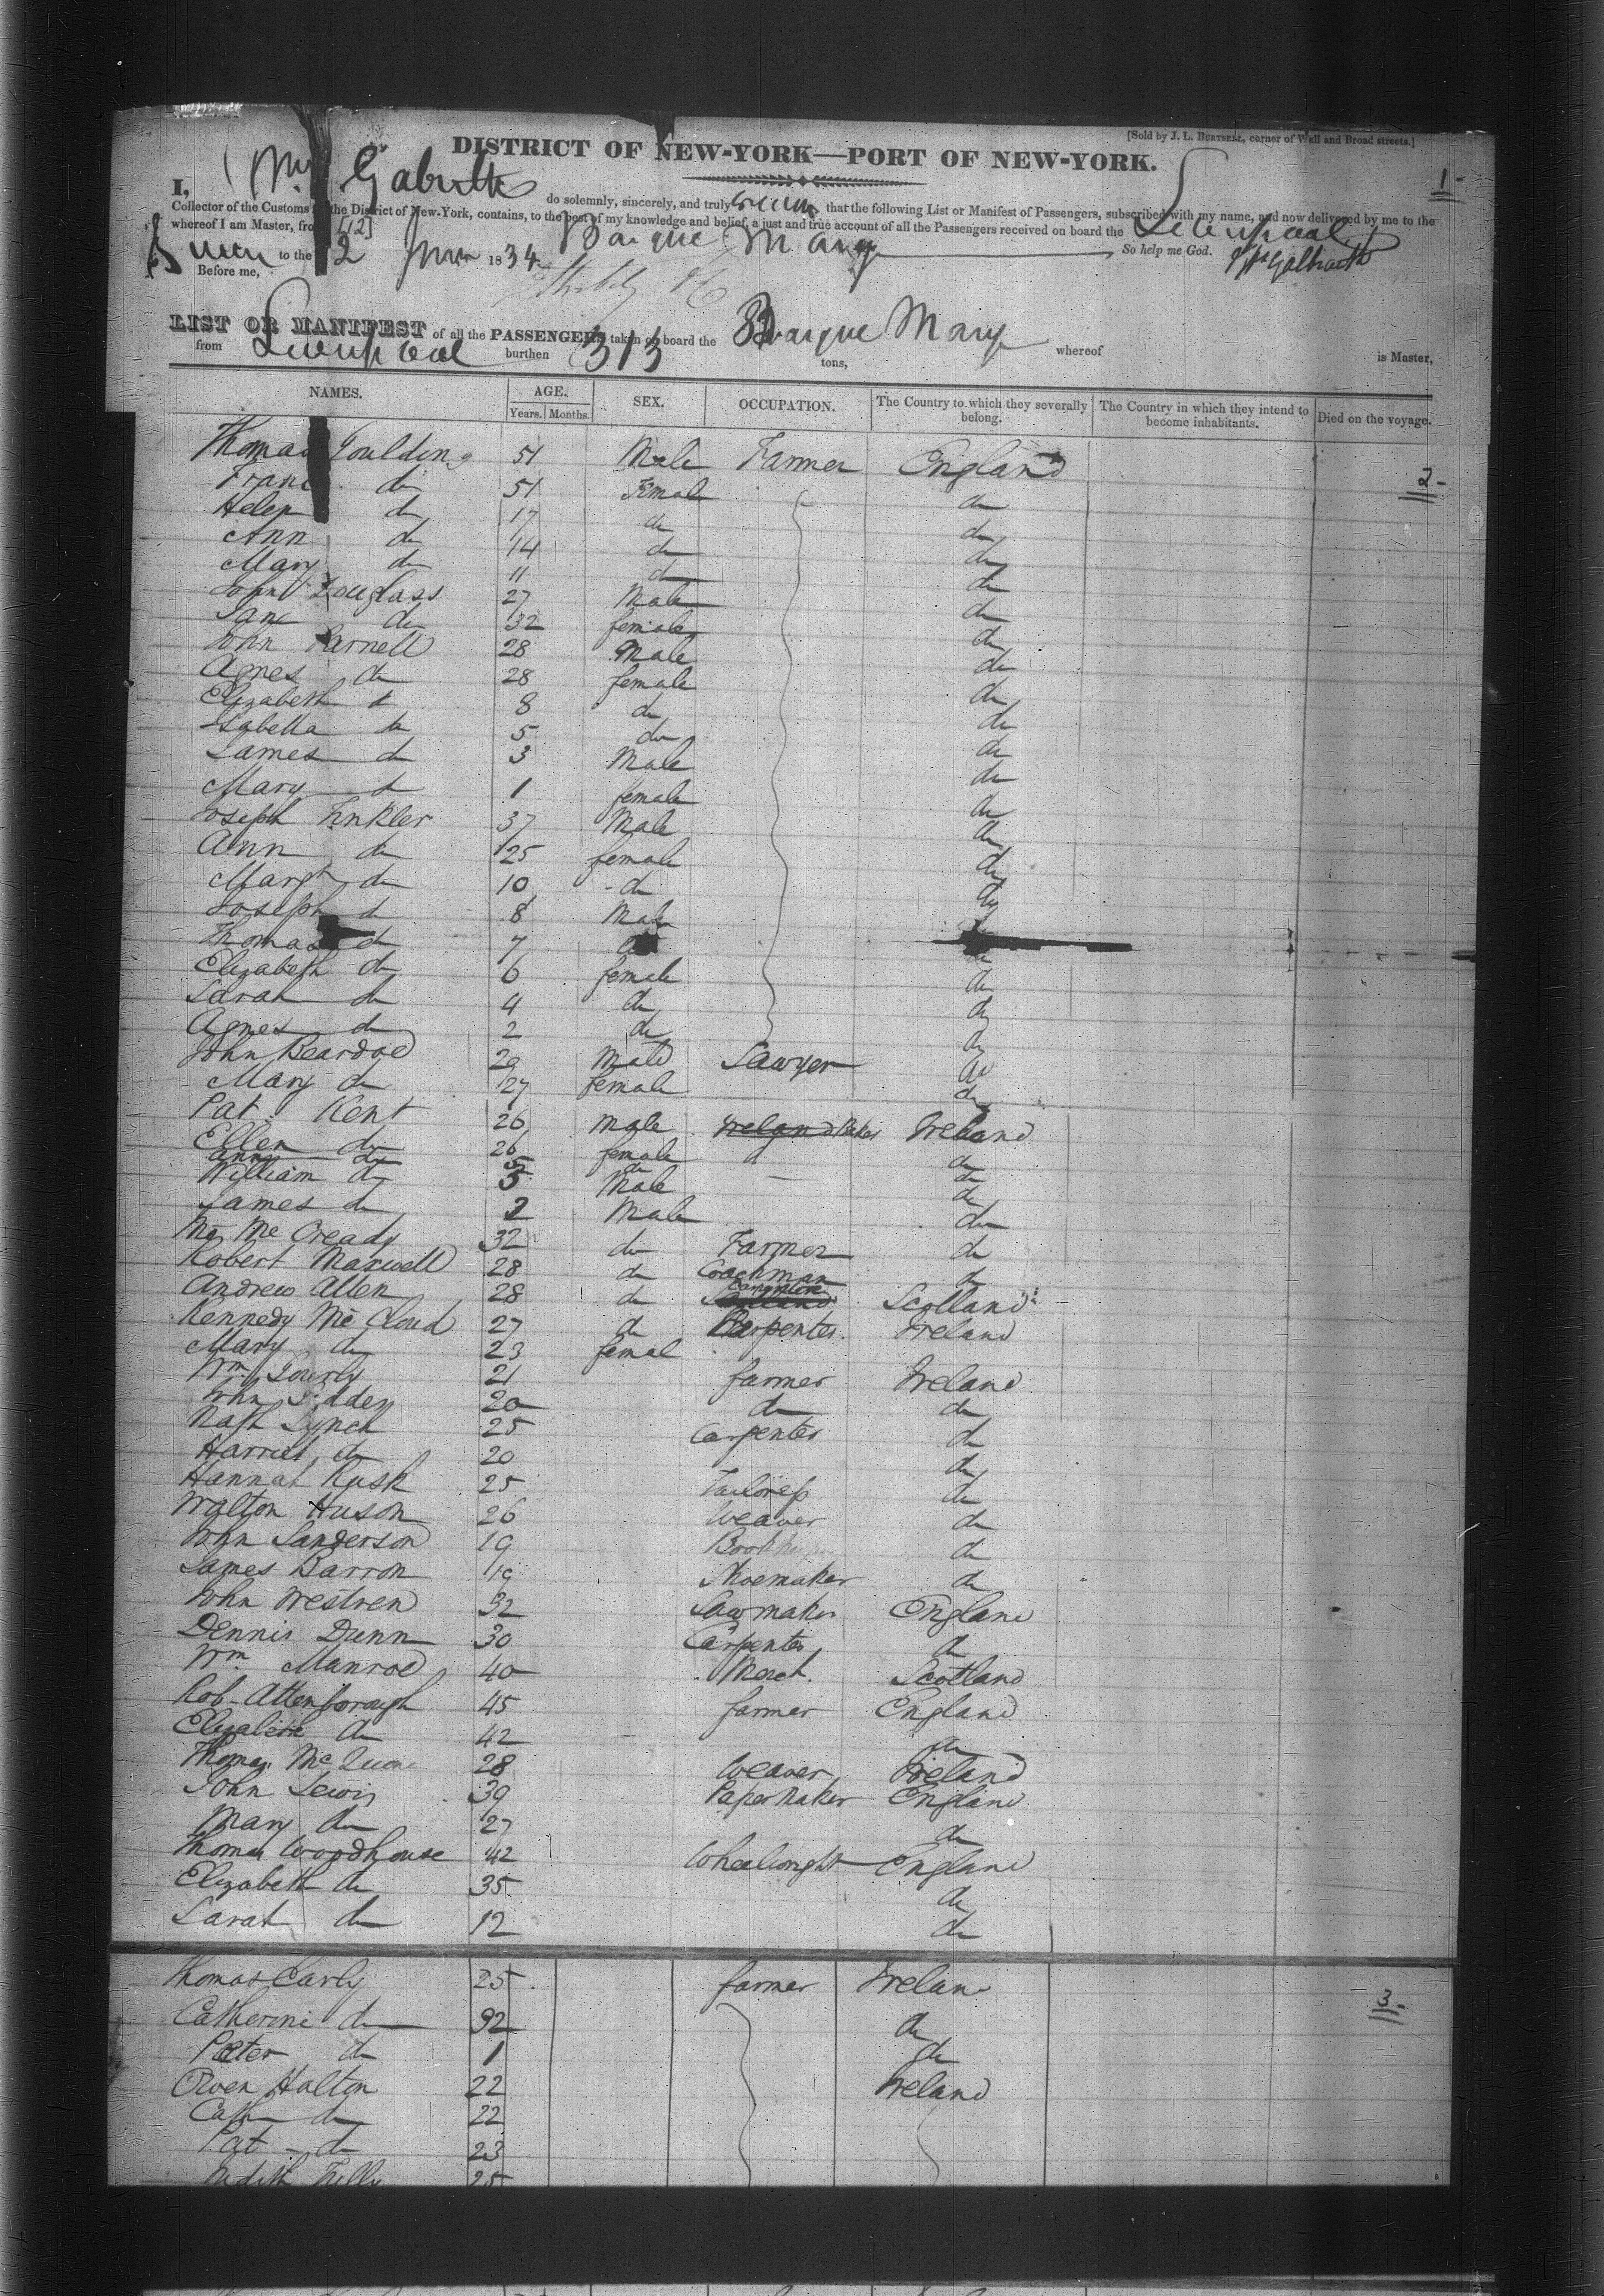 [Sold by J. L. BURTSELL, corner of Wall and Broad streets.]
DISTRICT OF NEW-YORK—PORT OF NEW-YORK.
1-
I, do solemnly, sincerely, and truly swear that the following List or Manifest of Passengers, subscribed with my name, and now delivered by me to the
Collector of the Customs the District of New-York, contains, to the best of my knowledge and belief, a just and true account of all the Passengers received on board the
whereof I am Master, from [12] Barque Mary Liverpool
Sworn to the 12 1834 So help me God. Wm Galbraith
Before me,
LIST OR MANIFEST of all the PASSENGERS taken on board the Barque Mary whereof is Master,
from Liverpool burthen 313 tons,
NAMES. AGE. SEX. OCCUPATION. The Country to which they severally belong. The Country in which they intend to become inhabitants. Died on the voyage.
Years. Months.
Thomas Goulding 51 Male Farmer England
2-
do 51 Female do
Helen do 17 do do
Ann do 14 do do
Mary do 11 do do
John Douglass 27 Male do
Jane do 32 female do
John Parnell 28 Male do
Agnes do 28 female do
Elizabeth do 8 do do
Isabella do 5 do do
James do 3 Male do
Mary do 1 female do
Joseph Tinkler 37 Male do
Ann do 25 female do
Margt do 10 do do
Joseph do 8 Male
Thomas do 7 do
Elizabeth do 6 female do
Sarah do 4 do do
Agnes do 2 do do
John 29 Male Sawyer do
Mary do 27 female do
Pat Kent 26 male Ireland Ireland
Ellen do 26 female do
Ann do 5 do do
William do 5 Male do
James do 2 Male do
Mc Cready 32 do Farmer do
Robert Maxwell 28 do Coachman do
Andrew Allen 28 do Carpenter Scotland
Kennedy Mc Cloud 27 do Carpenter Ireland
Mary do 23 femal
Wm 21 farmer Ireland
John 20 do do
Lynch 25 Carpenter do
Harriet do 20 do
Hannah Rusk 25 Tailoress do
Walton Huson 26 Weaver do
John Sanderson 19 Bookkeeper do
James Barron 19 Shoemaker do
John Westren 32 Sawmaker England
Dennis Dunn 30 Carpenter do
Wm Manroe 40 Merch. Scotland
Rob Attenborough 45 farmer England
Elizabeth do 42 do
Thomas 28 Weaver Ireland
John Lewis 39 Paper Maker England
Mary do 27 do
Thomas Woodhouse 42 Wheelwright England
Elizabeth do 35 do
Sarah do 12 do
Thomas Carly 25 farmer Ireland
3-
Catherine do 32 do
Peter do 1 do
Owen Halton 22 Ireland
Cath do 22
Pat do 23
Judith 25